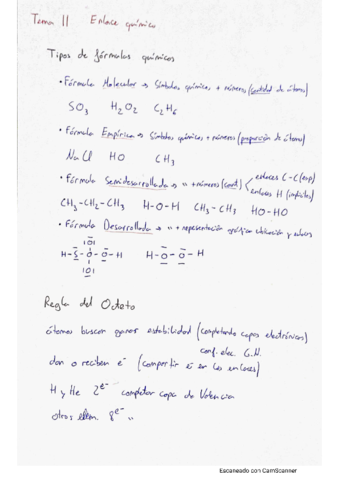 Tema 11 Enlace químico
Tipos de fórmulas químicas
• Fórmula Molecular → Símbolos químicos + números (cantidad de átomos)
SO3 H2O2 C2H6
• Fórmula Empírica → Símbolos químicos + números (proporción de átomos)
NaCl HO CH3
• Fórmula Semidesarrollada → " + números (cant) enlaces C-C (exp)
enlaces H (implícitos)
CH3-CH2-CH3 H-O-H CH3-CH3 HO-HO
• Fórmula Desarrollada → " + representación gráfica ubicación y enlaces
|O|
H-S-O-O-H H-O-O-H
|O|
Regla del Octeto
átomos buscar ganar estabilidad (completando capas electrónicas)
conf. elec. G.N.
dan o reciben e- (compartir e- en los enlaces)
H y He 2e- completar capa de Valencia
otros elem. 8e- "
Escaneado con CamScanner